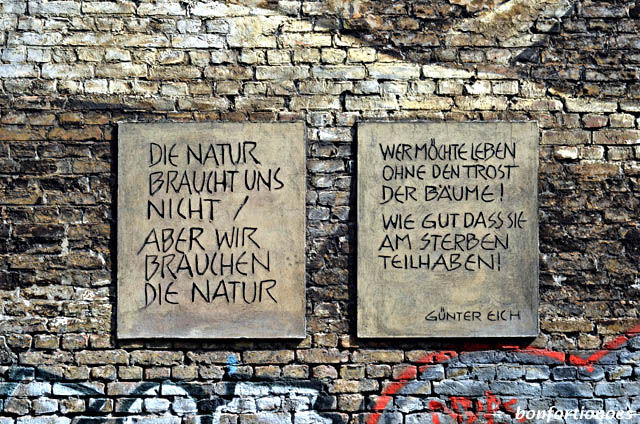 DIE NATUR
BRAUCHT UNS
NICHT /
ABER WIR
BRAUCHEN
DIE NATUR
WER MÖCHTE LEBEN
OHNE DEN TROST
DER BÄUME!
WIE GUT DASS SIE
AM STERBEN
TEILHABEN!
GÜNTER EICH
bonfortionoes